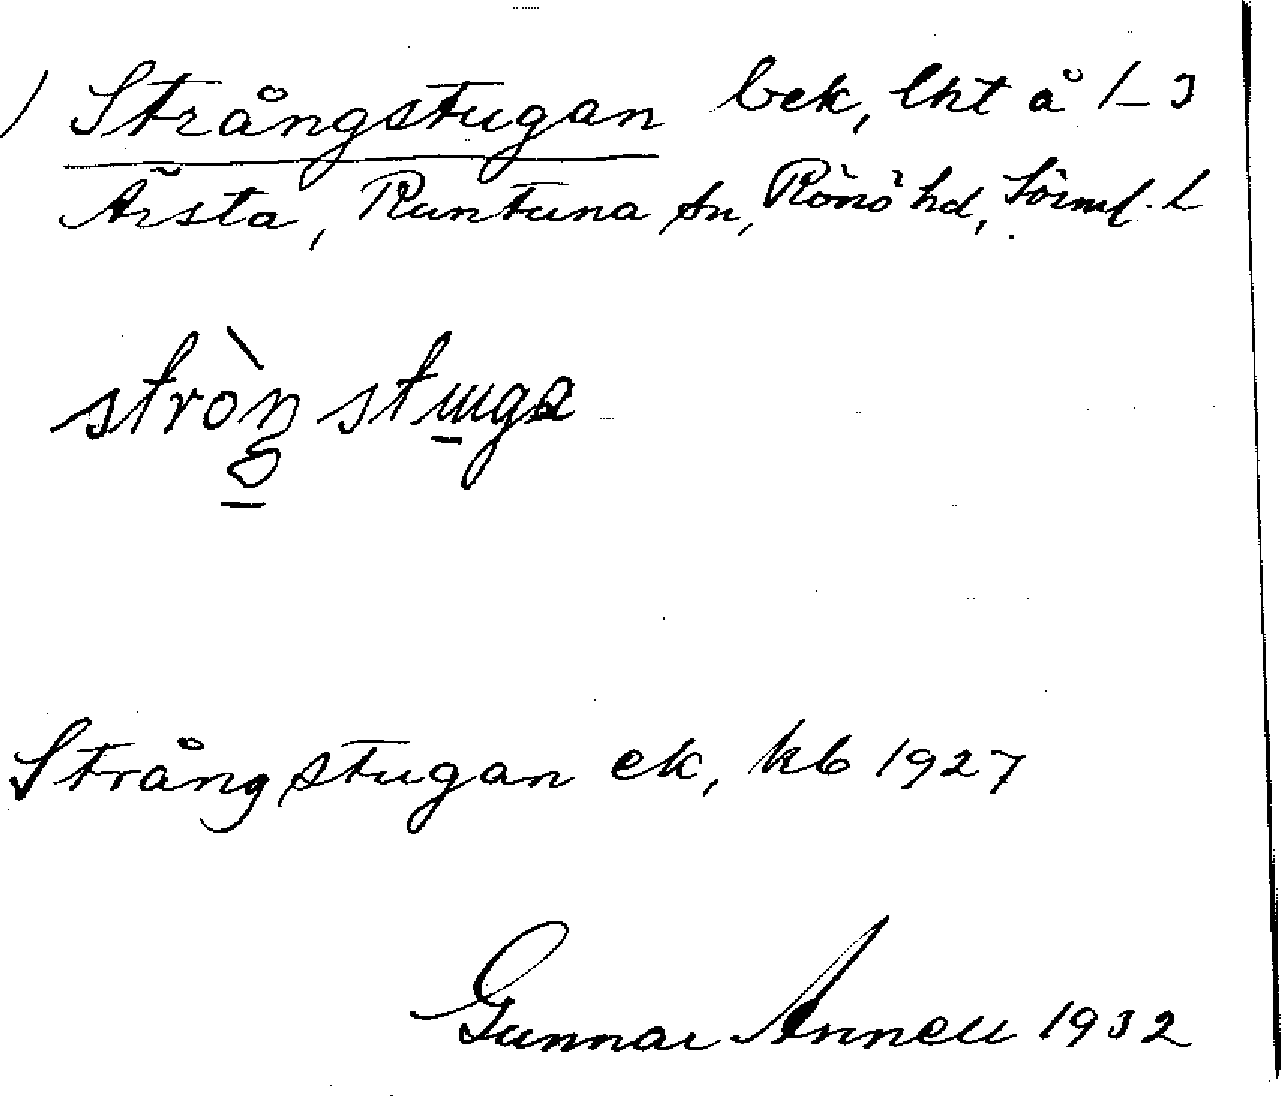 ) Strångstugan bek, lht å 1–3
Årsta, Runtuna sn, Rönö hd, Sörml. l
Strångstugan ek, kb 1927
Gunnar Annell 1932